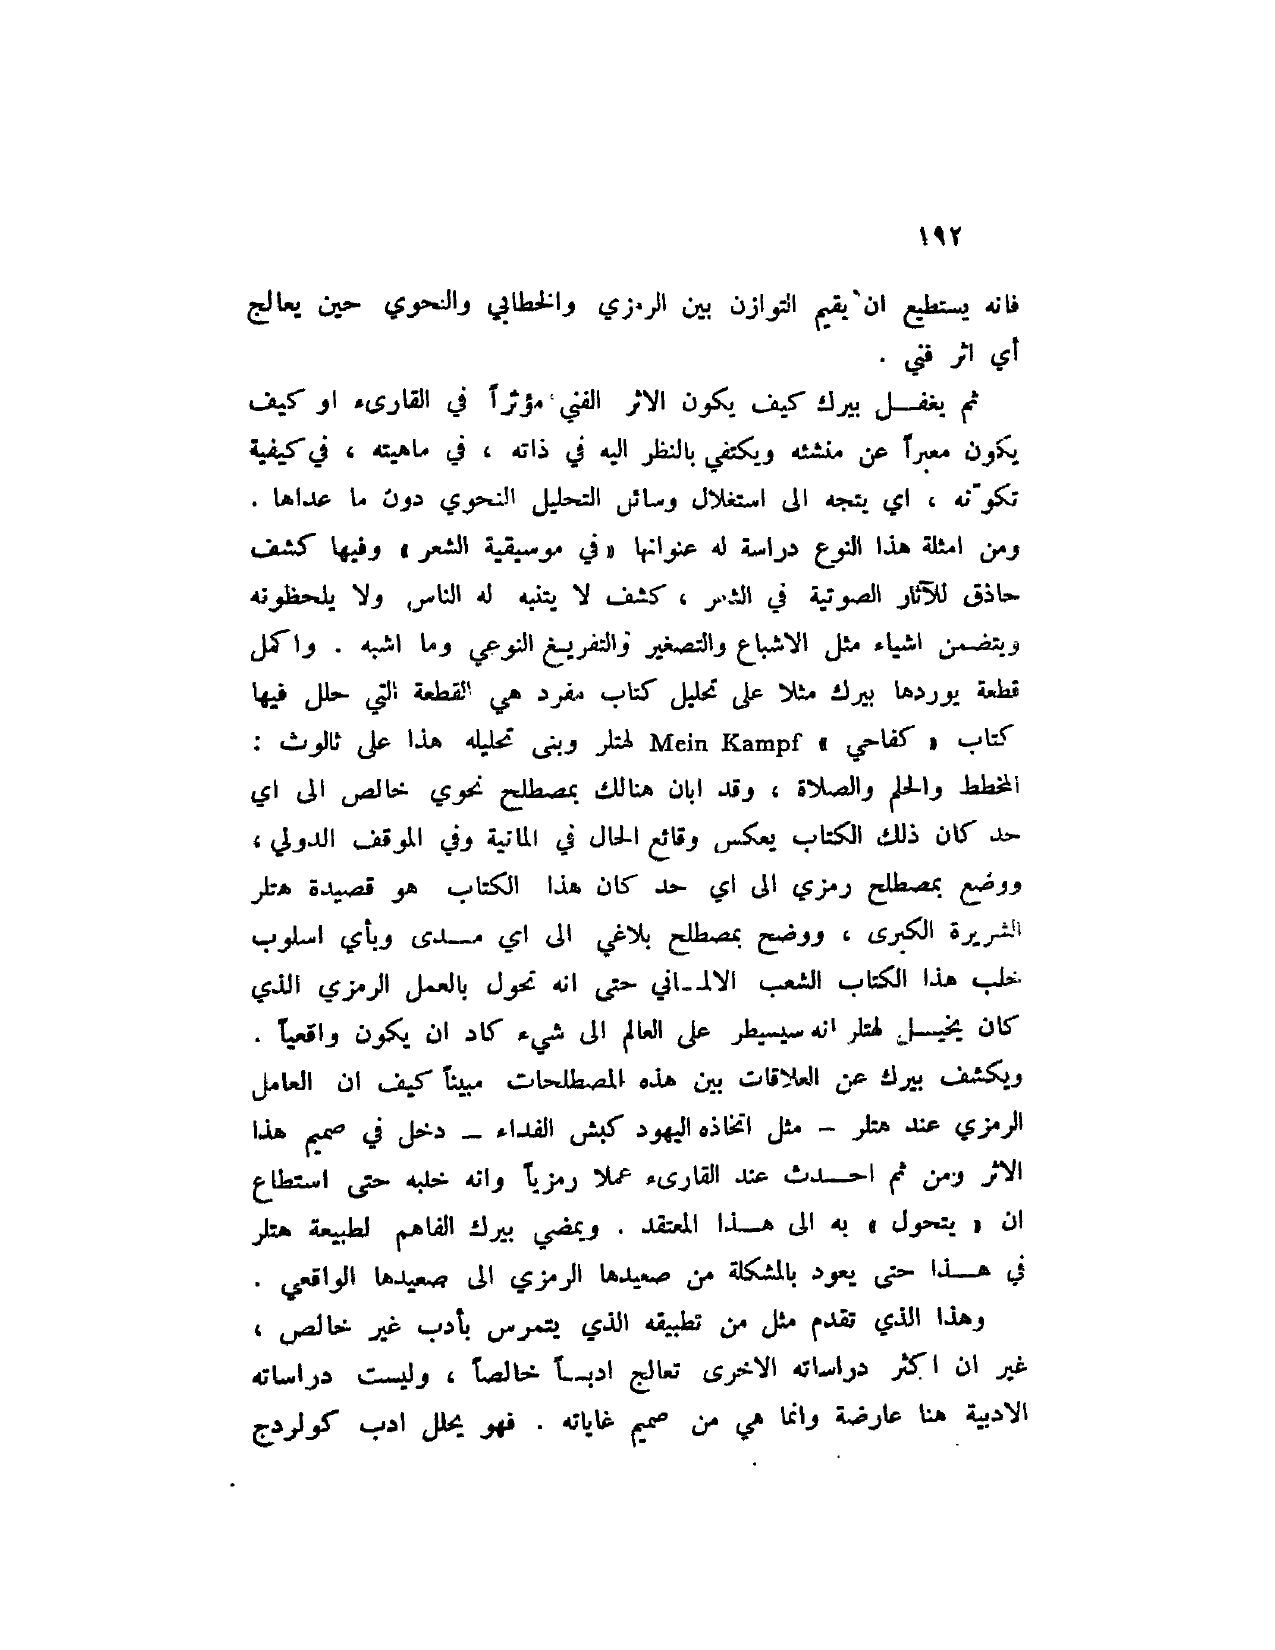 ١٩٢
فانه يستطيع ان يقيم التوازن بين الرمزي والخطابي والنحوي حين يعالج
أي اثر فني .
ثم يغفـــل بيرك كيف يكون الاثر الفني مؤثراً في القارىء او كيف
يكون معبراً عن منشئه ويكتفي بالنظر اليه في ذاته ، في ماهيته ، في كيفية
تكوّنه ، اي يتجه الى استغلال وسائل التحليل النحوي دون ما عداها .
ومن امثلة هذا النوع دراسة له عنوانها « في موسيقية الشعر » وفيها كشف
حاذق للآثار الصوتية في الشعر ، كشف لا يتنبه له الناس ولا يلحظونه
ويتضمن اشياء مثل الاشباع والتصغير والتفريغ النوعي وما اشبه . واكمل
قطعة يوردها بيرك مثلا على تحليل كتاب مفرد هي القطعة التي حلل فيها
كتاب « كفاحي » Mein Kampf لهتلر وبنى تحليله هذا على ثالوث :
المخطط والحلم والصلاة ، وقد ابان هنالك بمصطلح نحوي خالص الى اي
حد كان ذلك الكتاب يعكس وقائع الحال في المانية وفي الموقف الدولي ،
ووضع بمصطلح رمزي الى اي حد كان هذا الكتاب هو قصيدة هتلر
الشريرة الكبرى ، ووضح بمصطلح بلاغي الى اي مـــدى وبأي اسلوب
خلب هذا الكتاب الشعب الالمـاني حتى انه تحول بالعمل الرمزي الذي
كان يخيـــل لهتلر انه سيسيطر على العالم الى شيء كاد ان يكون واقعياً .
ويكشف بيرك عن العلاقات بين هذه المصطلحات مبيناً كيف ان العامل
الرمزي عند هتلر – مثل اتخاذه اليهود كبش الفداء – دخل في صميم هذا
الاثر ومن ثم احـــدث عند القارىء عملا رمزياً وانه خلبه حتى استطاع
ان « يتحول » به الى هـــذا المعتقد . ويمضي بيرك الفاهم لطبيعة هتلر
في هـــذا حتى يعود بالمشكلة من صعيدها الرمزي الى صعيدها الواقعي .
وهذا الذي تقدم مثل من تطبيقه الذي يتمرس بأدب غير خالص ،
غير ان اكثر دراساته الاخرى تعالج ادبـــاً خالصاً ، وليست دراساته
الادبية هنا عارضة وانما هي من صميم غاياته . فهو يحلل ادب كولردج